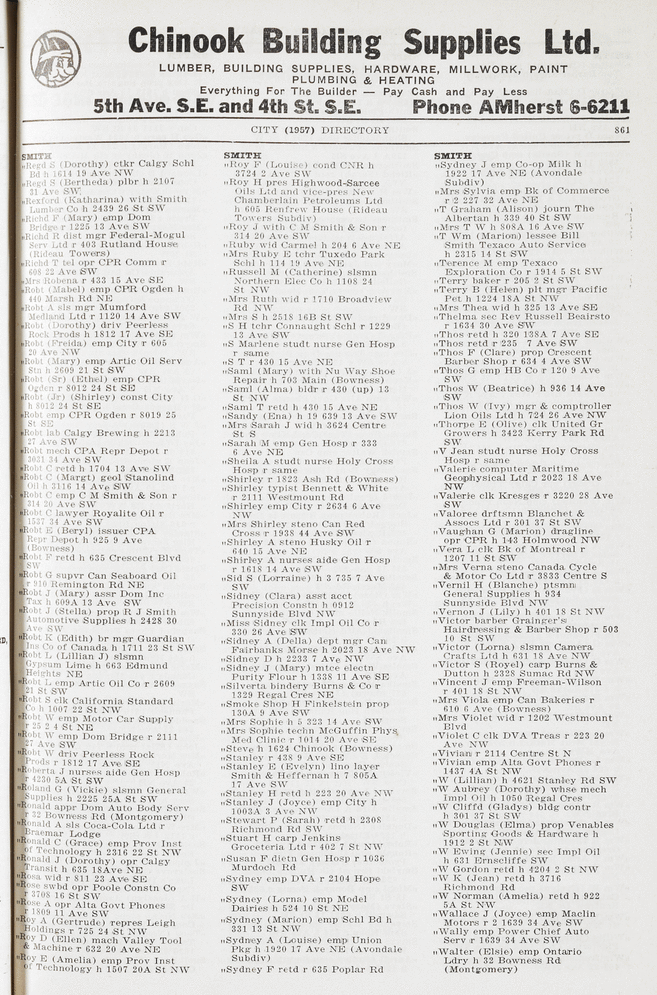 Chinook Building Supplies Ltd.
LUMBER, BUILDING SUPPLIES, HARDWARE, MILLWORK, PAINT
PLUMBING & HEATING
Everything For The Builder — Pay Cash and Pay Less
5th Ave. S.E. and 4th St. S.E. Phone AMherst 6-6211
CITY (1957) DIRECTORY 861
SMITH
„Regd S (Dorothy) ctkr Calgy Schl
Bd h 1614 19 Ave NW
„Regd S (Bertheda) plbr h 2107
31 Ave SW
„Rexford (Katharina) with Smith
Lumber Co h 2439 26 St SW
„Richd F (Mary) emp Dom
Bridge r 1225 13 Ave SW
„Richd R dist mgr Federal-Mogul
Serv Ltd r 403 Rutland House
(Rideau Towers)
„Richd T tel opr CPR Comm r
608 22 Ave SW
„Mrs Robena r 433 15 Ave SE
„Robt (Mabel) emp CPR Ogden h
440 Marsh Rd NE
„Robt A sls mgr Mumford
Medland Ltd r 1120 14 Ave SW
„Robt (Dorothy) driv Peerless
Rock Prods h 1812 17 Ave SE
„Robt (Freida) emp City r 605
20 Ave NW
„Robt (Mary) emp Artic Oil Serv
Stn h 2609 21 St SW
„Robt (Sr) (Ethel) emp CPR
Ogden r 8012 24 St SE
„Robt (Jr) (Shirley) const City
h 8012 24 St SE
„Robt emp CPR Ogden r 8019 25
St SE
„Robt lab Calgy Brewing h 2213
27 Ave SW
„Robt mech CPA Repr Depot r
3031 34 Ave SW
„Robt C retd h 1704 13 Ave SW
„Robt C (Margt) geol Stanolind
Oil h 3116 14 Ave SW
„Robt C emp C M Smith & Son r
314 20 Ave SW
„Robt C lawyer Royalite Oil r
1537 34 Ave SW
„Robt E (Beryl) issuer CPA
Repr Depot h 925 9 Ave
(Bowness)
„Robt F retd h 635 Crescent Blvd
SW
„Robt G supvr Can Seaboard Oil
r 910 Remington Rd NE
„Robt J (Mary) assr Dom Inc
Tax h 609A 13 Ave SW
„Robt J (Stella) prop R J Smith
Automotive Supplies h 2428 30
Ave SW
„Robt K (Edith) br mgr Guardian
Ins Co of Canada h 1711 23 St SW
„Robt L (Lillian J) slsmn
Gypsum Lime h 663 Edmund
Heights NE
„Robt L emp Artic Oil Co r 2609
21 St SW
„Robt S clk California Standard
Co h 1007 22 St NW
„Robt W emp Motor Car Supply
r 25 2 4 St NE
„Robt W emp Dom Bridge r 2111
27 Ave SW
„Robt W driv Peerless Rock
Prods r 1812 17 Ave SE
„Roberta J nurses aide Gen Hosp
r 4230 5A St SW
„Roland G (Vickie) slsmn General
Supplies h 2225 25A St SW
„Ronald appr Dom Auto Body Serv
r 32 Bowness Rd (Montgomery)
„Ronald A sls Coca-Cola Ltd r
Braemar Lodge
„Ronald C (Grace) emp Prov Inst
of Technology h 2316 22 St NW
„Ronald J (Dorothy) opr Calgy
Transit h 635 18Ave NE
„Rosa wid r 811 23 Ave SE
„Rose swbd opr Poole Constn Co
r 3708 16 St SW
„Rose A opr Alta Govt Phones
r 1809 11 Ave SW
„Roy A (Gertrude) repres Leigh
Holdings r 725 24 St NW
„Roy D (Ellen) mach Valley Tool
& Machine r 632 20 Ave NE
„Roy E (Amelia) emp Prov Inst
of Technology h 1507 20A St NW
SMITH
„Roy F (Louise) cond CNR h
3724 2 Ave SW
„Roy H pres Highwood-Sarcee
Oils Ltd and vice-pres New
Chamberlain Petroleums Ltd
h 605 Renfrew House (Rideau
Towers Subdiv)
„Roy J with C M Smith & Son r
314 20 Ave SW
„Ruby wid Carmel h 204 6 Ave NE
„Mrs Ruby E tchr Tuxedo Park
Schl h 114 19 Ave NE
„Russell M (Catherine) slsmn
Northern Elec Co h 1108 24
St NW
„Mrs Ruth wid r 1710 Broadview
Rd NW
„Mrs S h 2518 16B St SW
„S H tchr Connaught Schl r 1229
13 Ave SW
„S Marlene studt nurse Gen Hosp
r same
„S T r 430 15 Ave NE
„Saml (Mary) with Nu Way Shoe
Repair h 703 Main (Bowness)
„Saml (Alma) bldr r 430 (up) 13
St NW
„Saml T retd h 430 15 Ave NE
„Sandy (Ena) h 19 639 13 Ave SW
„Mrs Sarah J wid h 3624 Centre
St S
„Sarah M emp Gen Hosp r 333
6 Ave NE
„Sheila A studt nurse Holy Cross
Hosp r same
„Shirley r 1823 Ash Rd (Bowness)
„Shirley typist Bennett & White
r 2111 Westmount Rd
„Shirley emp City r 2634 6 Ave
NW
„Mrs Shirley steno Can Red
Cross r 1938 44 Ave SW
„Shirley A steno Husky Oil r
640 15 Ave NE
„Shirley A nurses aide Gen Hosp
r 1618 14 Ave SW
„Sid S (Lorraine) h 3 735 7 Ave
SW
„Sidney (Clara) asst acct
Precision Constn h 0912
Sunnyside Blvd NW
„Miss Sidney clk Impl Oil Co r
330 26 Ave SW
„Sidney A (Della) dept mgr Can
Fairbanks Morse h 2023 18 Ave NW
„Sidney D h 2233 7 Ave NW
„Sidney J (Mary) mtce electn
Purity Flour h 1338 11 Ave SE
„Silverta bindery Burns & Co r
1329 Regal Cres NE
„Smoke Shop H Finkelstein prop
130A 9 Ave SW
„Mrs Sophie h 5 323 14 Ave SW
„Mrs Sophie techn McGuffin Phys
Med Clinic r 1014 20 Ave SE
„Steve h 1624 Chinook (Bowness)
„Stanley r 438 9 Ave SE
„Stanley E (Evelyn) lino layer
Smith & Heffernan h 7 805A
17 Ave SW
„Stanley H retd h 223 20 Ave NW
„Stanley J (Joyce) emp City h
1003A 3 Ave NW
„Stewart P (Sarah) retd h 2308
Richmond Rd SW
„Stuart H carp Jenkins
Groceteria Ltd r 402 7 St NW
„Susan F dietn Gen Hosp r 1036
Murdoch Rd
„Sydney emp DVA r 2104 Hope
SW
„Sydney (Lorna) emp Model
Dairies h 524 10 St NE
„Sydney (Marion) emp Schl Bd h
331 13 St NW
„Sydney A (Louise) emp Union
Pkg h 1920 17 Ave NE (Avondale
Subdiv)
„Sydney F retd r 635 Poplar Rd
SMITH
„Sydney J emp Co-op Milk h
1922 17 Ave NE (Avonale
Subdiv)
„Mrs Sylvia emp Bk of Commerce
r 2 227 32 Ave NE
„T Graham (Alison) journ The
Albertan h 339 40 St SW
„Mrs T W h 808A 16 Ave SW
„T Wm (Marion) lessee Bill
Smith Texaco Auto Service
h 2315 14 St SW
„Terence M emp Texaco
Exploration Co r 1914 5 St SW
„Terry baker r 205 2 St SW
„Terry B (Helen) plt mgr Pacific
Pet h 1224 18A St NW
„Mrs Thea wid h 325 13 Ave SE
„Thelma sec Rev Russell Bearisto
r 1634 30 Ave SW
„Thos retd h 320 138A 7 Ave SE
„Thos retd r 235 7 Ave SW
„Thos F (Clare) prop Crescent
Barber Shop r 634 4 Ave SW
„Thos G emp HB Co r 120 9 Ave
SW
„Thos W (Beatrice) h 936 14 Ave
SW
„Thos W (Ivy) mgr & comptroller
Lion Oils Ltd h 724 26 Ave NW
„Thorpe E (Olive) clk United Gr
Growers h 3423 Kerry Park Rd
SW
„V Jean studt nurse Holy Cross
Hosp r same
„Valerie computer Maritime
Geophysical Ltd r 2023 18 Ave
NW
„Valerie clk Kresges r 3220 28 Ave
SW
„Valoree drftsmn Blanchet &
Assocs Ltd r 301 37 St SW
„Vaughan G (Marion) dragline
opr CPR h 143 Holmwood NW
„Vera L clk Bk of Montreal r
1207 11 St SW
„Mrs Verna steno Canada Cycle
& Motor Co Ltd r 3833 Centre S
„Vernil H (Blanche) ptsmn
General Supplies h 934
Sunnyside Blvd NW
„Vernon J (Lily) h 401 18 St NW
„Victor barber Grainger's
Hairdressing & Barber Shop r 503
10 St SW
„Victor (Lorna) slsmn Camera
Crafts Ltd h 631 18 Ave NW
„Victor S (Royel) carp Burns &
Dutton h 2328 Sumac Rd NW
„Vincent J emp Freeman-Wilson
r 401 18 St NW
„Mrs Viola emp Can Bakeries r
610 6 Ave (Bowness)
„Mrs Violet wid r 1202 Westmount
Blvd
„Violet C clk DVA Treas r 223 20
Ave NW
„Vivian r 2114 Centre St N
„Vivian emp Alta Govt Phones r
1437 4A St NW
„W (Lillian) h 4621 Stanley Rd SW
„W Aubrey (Dorothy) whse mech
Impl Oil h 1050 Regal Cres
„W Cliffd (Gladys) bldg contr
h 301 37 St SW
„W Douglas (Elma) prop Venables
Sporting Goods & Hardware h
1912 2 St NW
„W Ewing (Jennie) sec Impl Oil
h 631 Ernscliffe SW
„W Gordon retd h 4204 2 St NW
„W K (Jean) retd h 3716
Richmond Rd
„W Norman (Amelia) retd h 922
5A St NW
„Wallace J (Joyce) emp Maclin
Motors r 2 1639 34 Ave SW
„Wally emp Power Chief Auto
Serv r 1639 34 Ave SW
„Walter (Elsie) emp Ontario
Ldry h 32 Bowness Rd
(Montgomery)